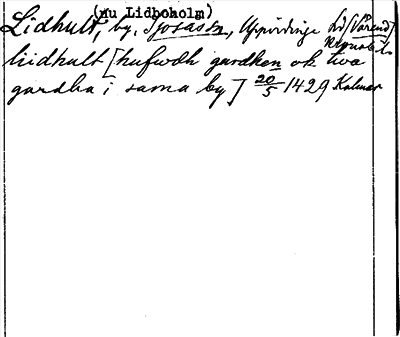 (nu Lidboholm)
Lidhult, by, Sjösåss, Uppvidinge hd [Värend]
Kronob. l.
liidhult [hufwdh gardhen ok twa
gardha i sama by] 20/5 1429 Kalmar